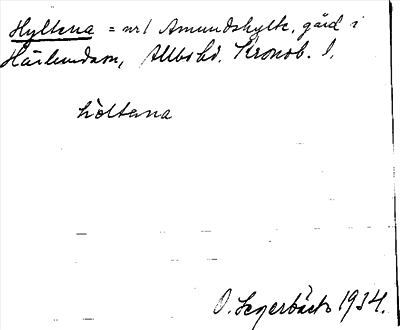 Hyltena = nr 1 Amundshylte, gård i
Härlunda sn, Allbo hd. Kronob. l.
höltena
O. Segerbäck 1934.